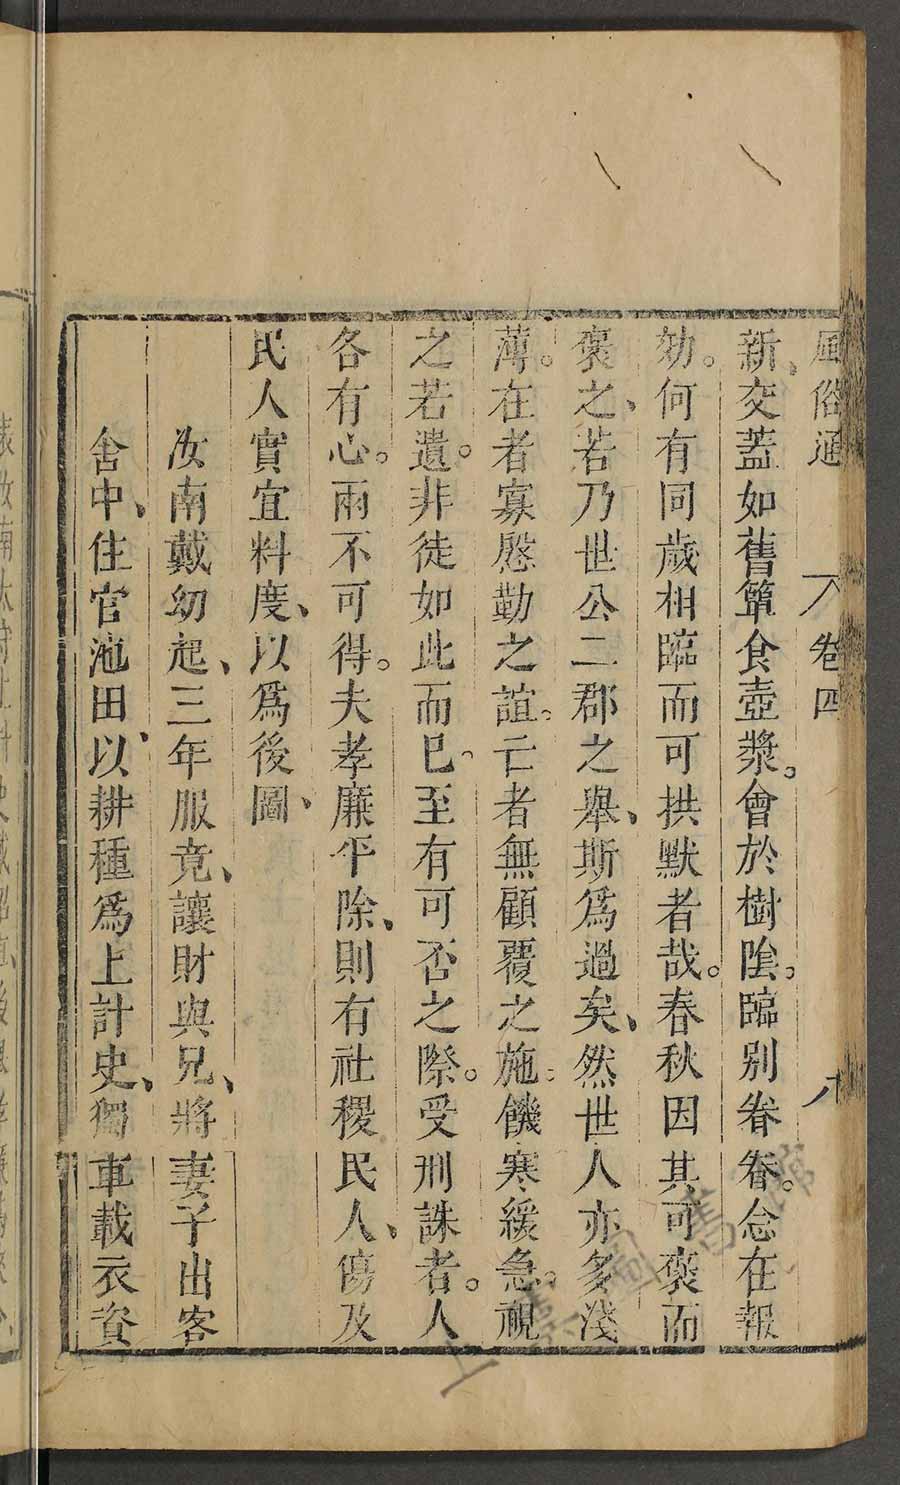 風俗通 卷四 八
新、交蓋如舊簞食壺漿。會於樹陰。臨別眷眷。念在報
効。何有同歲相臨而可拱默者哉。春秋因其可褒而
褒之、若乃世公二郡之舉、斯爲過矣、然世人亦多淺
薄。在者寡慇勤之誼。亡者無顧覆之施。饑寒緩急。視
之若遺。非徒如此而已。至有可否之際。受刑誅者。人
各有心。兩不可得。夫孝廉平除、則有社稷民人、傷及
民人實宜料度、以爲後圖、
汝南戴幼起、三年服竟、讓財與兄、將妻子出客
舍中、住官池田、以耕種爲上計史、獨車載衣資